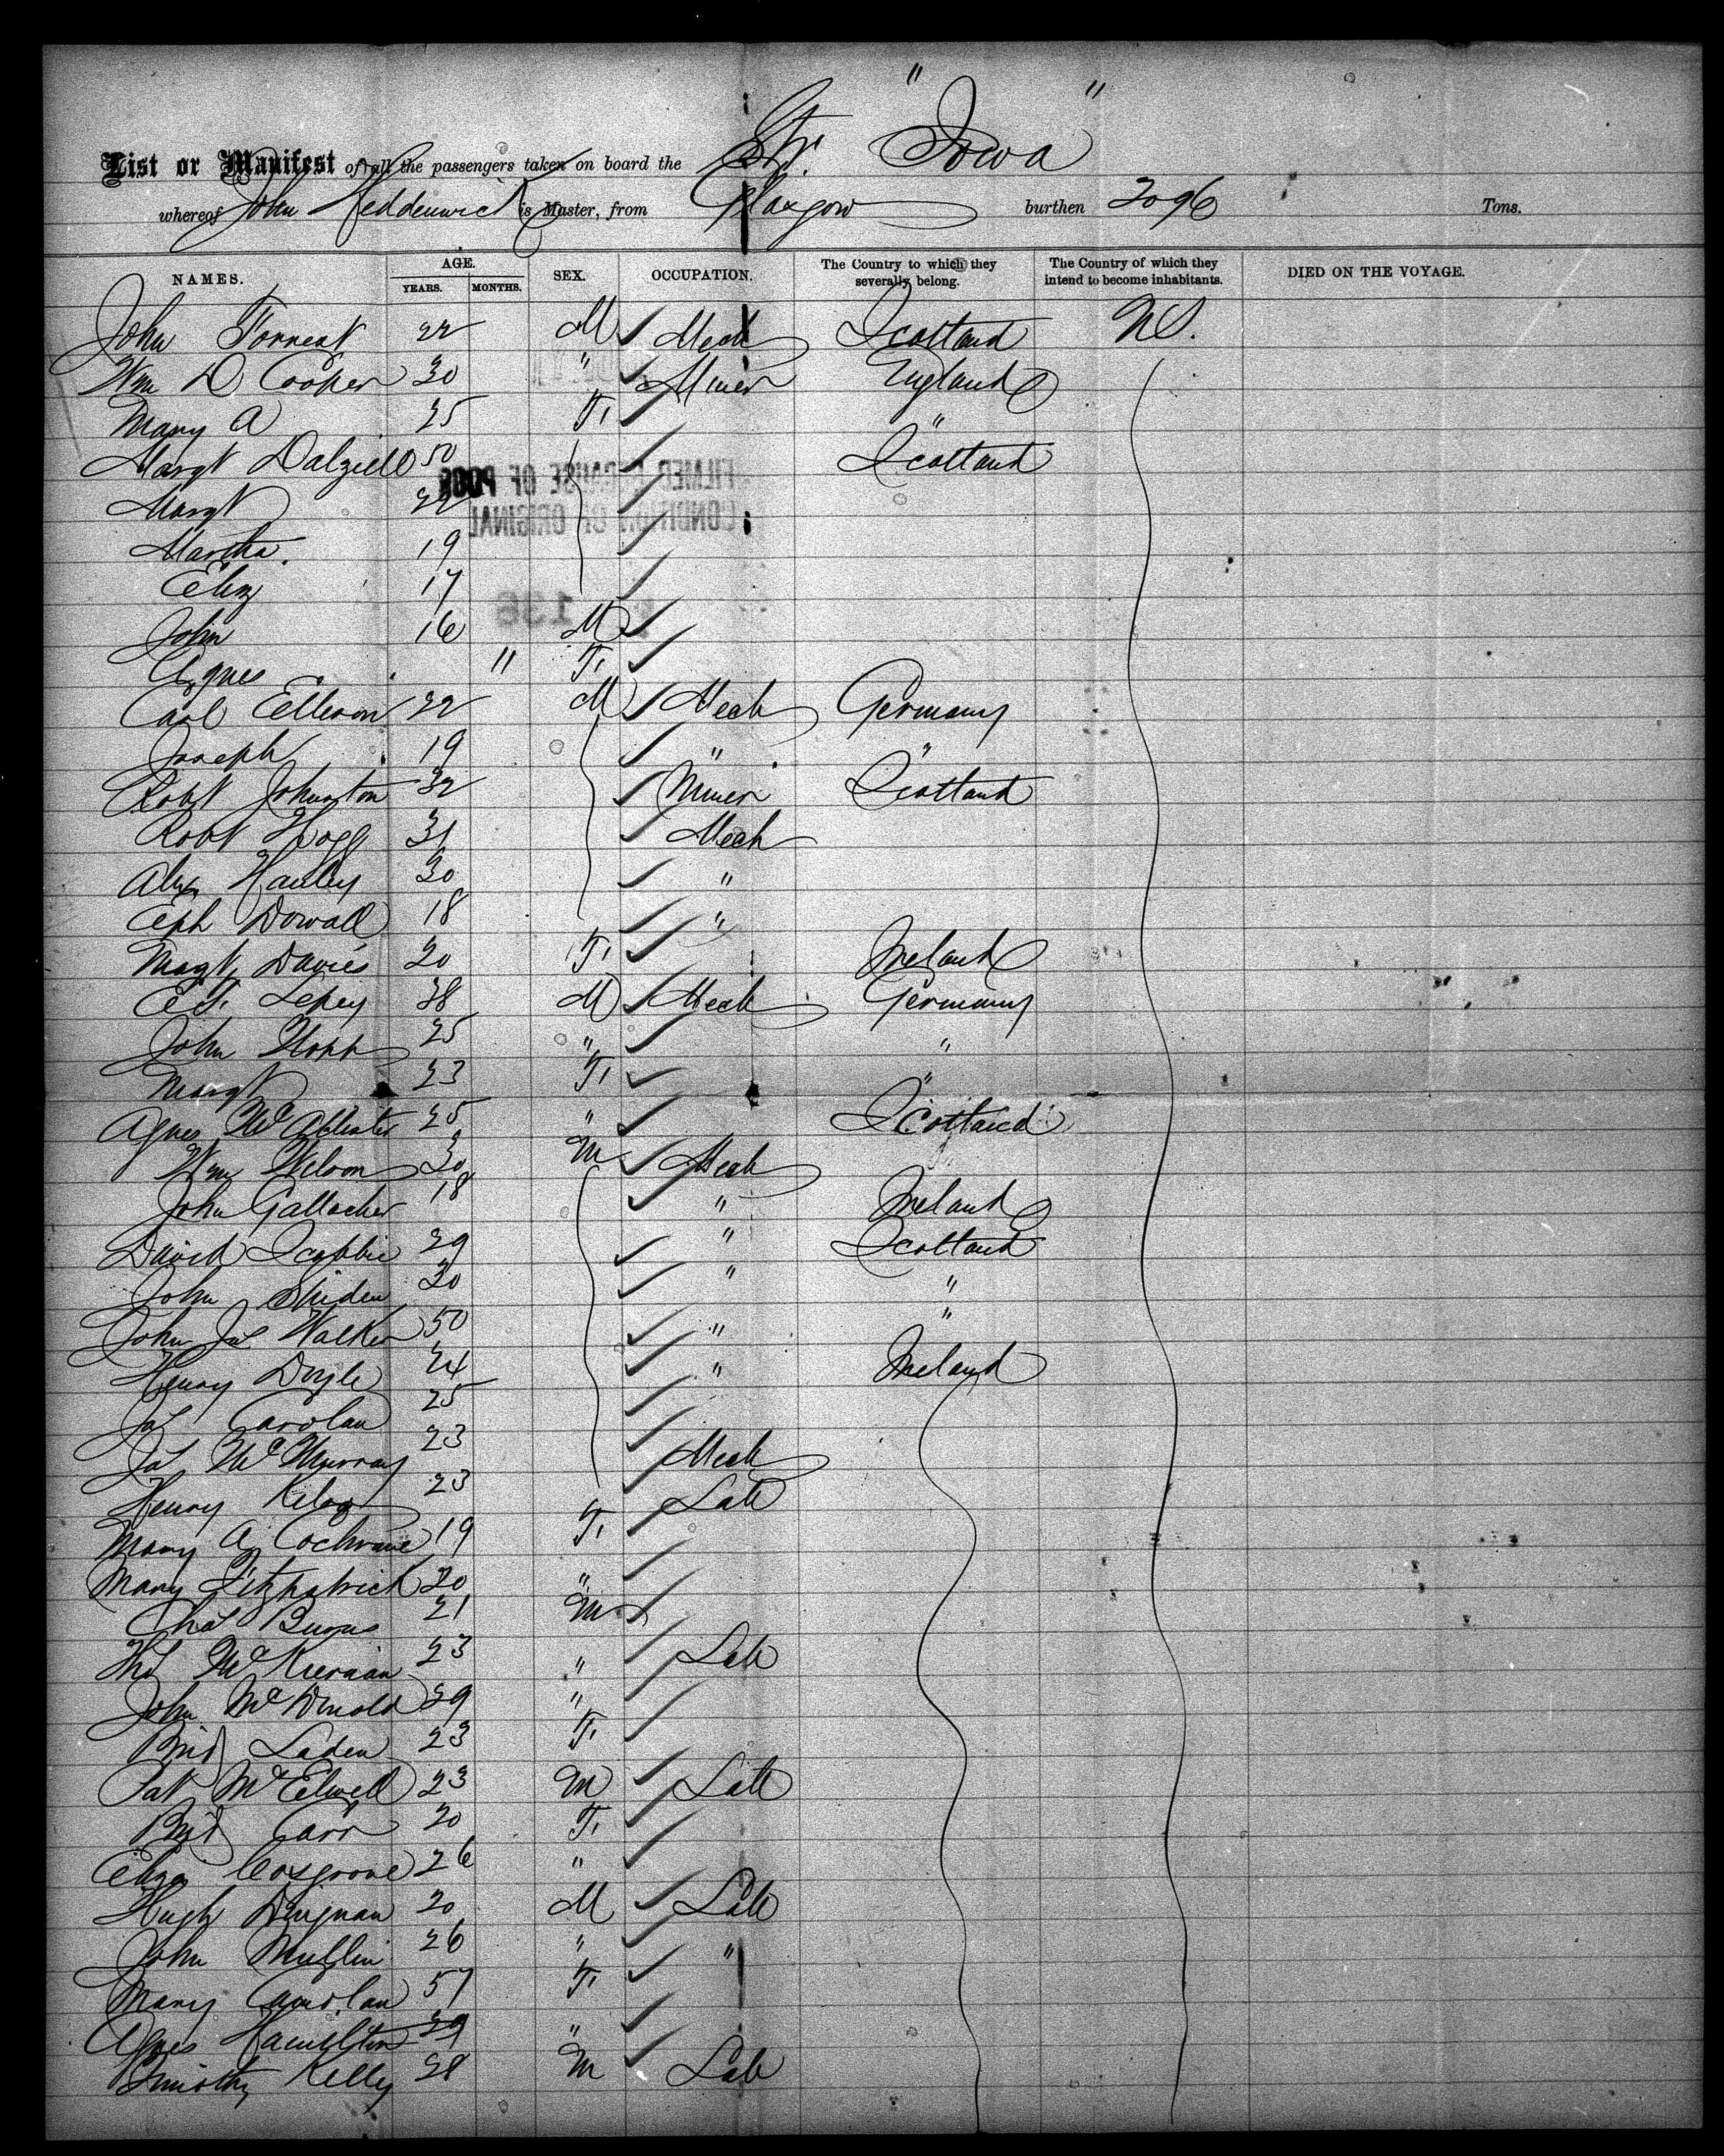 List or Manifest of all the passengers taken on board the Str. "Iowa"
whereof John Hedderwick is Master, from Glasgow burthen 2096 Tons.
NAMES. AGE. YEARS. MONTHS. SEX. OCCUPATION. The Country to which they severally belong. The Country of which they intend to become inhabitants. DIED ON THE VOYAGE.
John Forrest 22 M Mech Scotland US.
Wm D Cooper 30 " Miner England
Mary A 25 F "
Margt Dalziell 50 Scotland
Margt 22
Martha. 19
Eliz 17
John 16 M
Agnes " F
Carl Elleson 22 M Mech Germany
Joseph 19 " "
Robt Johnston 32 Miner Scotland
Robt Hogg 31 Mech
Alex Hanley 30 "
Eph Dowall 18 "
Magt Davies 20 F Ireland
38 M Mech Germany
John 25 " "
Margt 23 F "
Agnes McAllister 25 " Scotland
Wm Wilson 30 M Mech
John Gallacher 18 " Ireland
David 29 " Scotland
John 30 " "
John Jas Walker 50 " "
Henry Doyle 24 " Ireland
Jas Carolan 25
Jas McMurray 23 Mech
Henry 23 Lab
Mary A Cochrane 19 F
Mary Fitzpatrick 20 "
Chas Burns 21 M
Ths McKiernan 23 " Lab
John McDonald 29 "
Brid Laden 23 F
Pat McElwell 23 M Lab
Brid Carr 20 F
Eliza Cosgrove 26 "
Hugh Duignan 20 M Lab
John Mullin 26 " "
Mary Carolan 57 F
Agnes Hamilton 29 "
Timothy Kelly 28 M Lab
FILMED BECAUSE OF POOR
CONDITION OF ORIGINAL